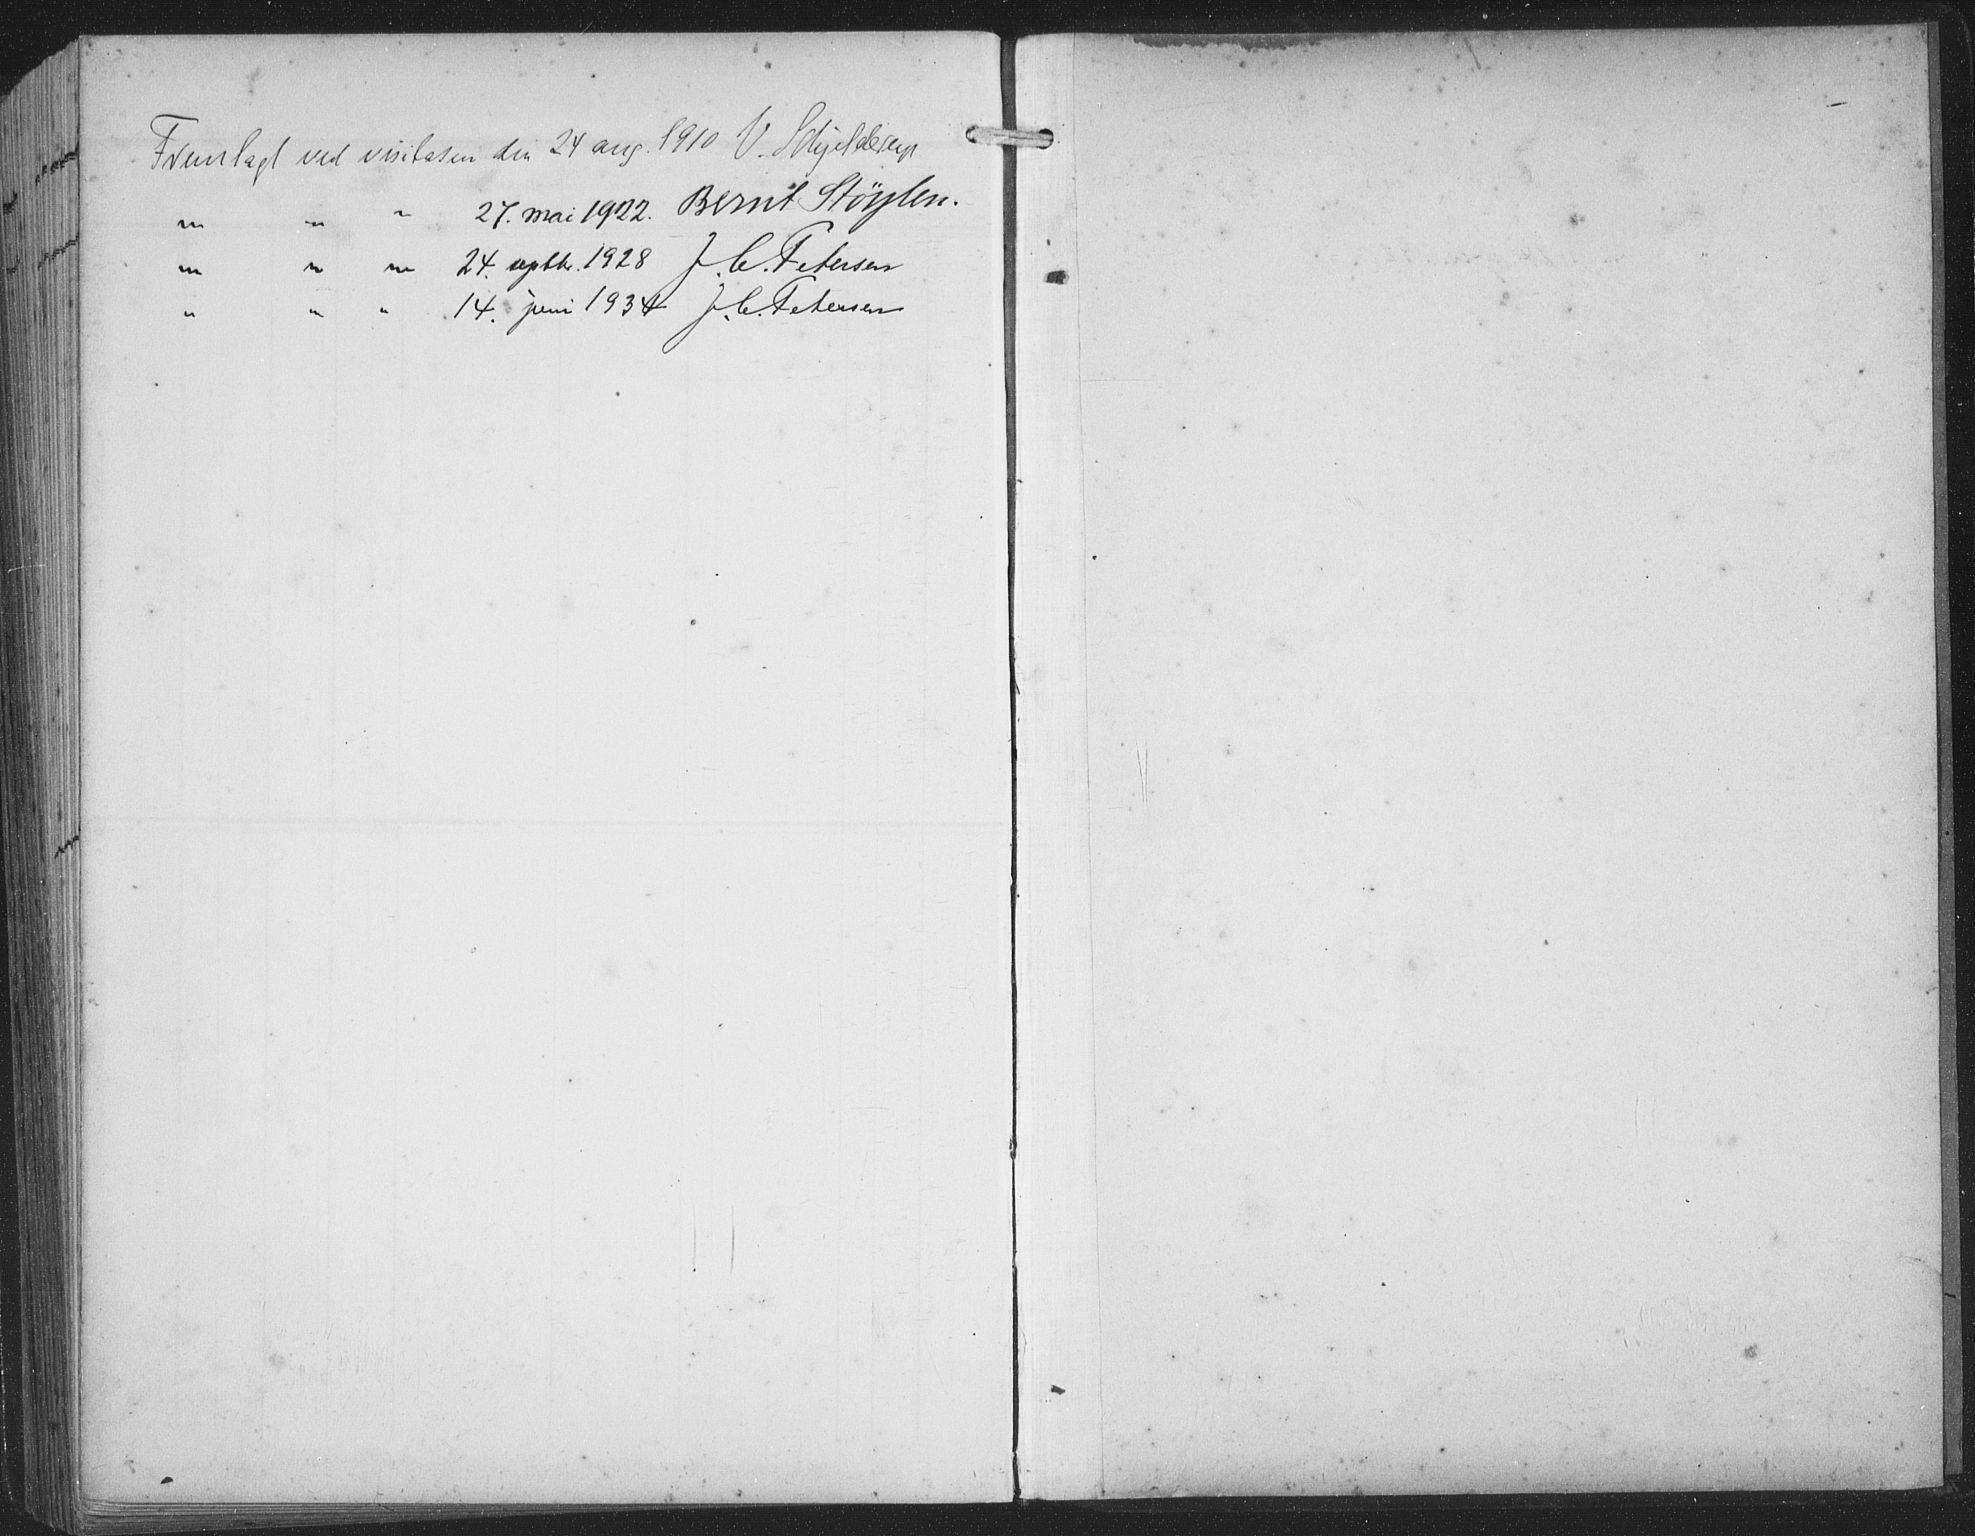 Fremlagt ved visitasen den 24 aug. 1910 V. Schjelderup
" " " 27. mai 1922. Bernt Stöylen.
" " " 24. septbr. 1928 J. C. Petersen
" " " 14. juni 1934 J. C. Petersen